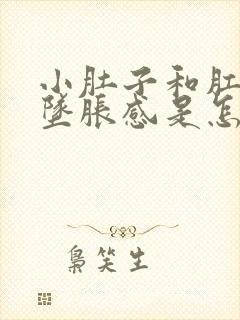 小肚子和肛
坠胀感是怎
枭笑生